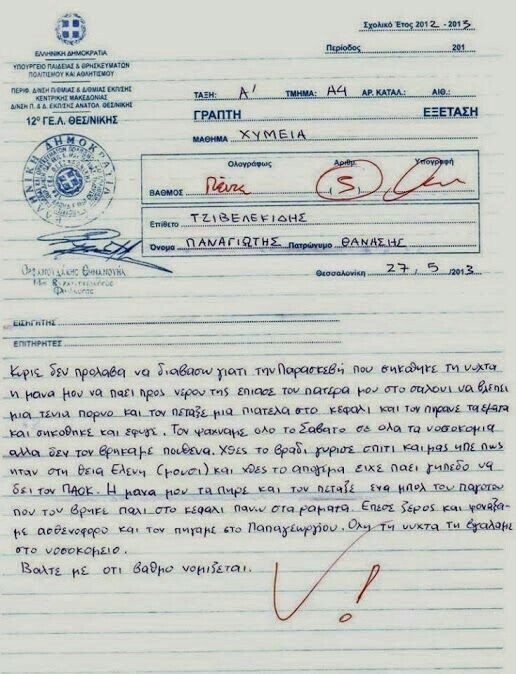 Σχολικό Έτος 2012 - 2013
Περίοδος 201
ΕΛΛΗΝΙΚΗ ΔΗΜΟΚΡΑΤΙΑ
ΥΠΟΥΡΓΕΙΟ ΠΑΙΔΕΙΑΣ & ΘΡΗΣΚΕΥΜΑΤΩΝ
ΠΟΛΙΤΙΣΜΟΥ ΚΑΙ ΑΘΛΗΤΙΣΜΟΥ
ΠΕΡΙΦ. Δ/ΝΣΗ Π/ΘΜΙΑΣ & Δ/ΘΜΙΑΣ ΕΚΠ/ΣΗΣ
ΚΕΝΤΡΙΚΗΣ ΜΑΚΕΔΟΝΙΑΣ
Δ/ΝΣΗ Π. & Δ.Δ ΕΚΠ/ΣΗΣ ΑΝΑΤΟΛ. ΘΕΣ/ΝΙΚΗΣ
12º ΓΕ.Λ. ΘΕΣ/ΝΙΚΗΣ
ΤΑΞΗ: Α' ΤΜΗΜΑ: Α4 ΑΡ. ΚΑΤΑΛ.: ΑΙΘ.:
ΓΡΑΠΤΗ ΕΞΕΤΑΣΗ
ΜΑΘΗΜΑ ΧΥΜΕΙΑ
Ολογράφως Αριθμ. Υπογραφή
ΒΑΘΜΟΣ Πέντε (5)
Επίθετο ΤΖΙΒΕΛΕΚΙΔΗΣ
Όνομα ΠΑΝΑΓΙΩΤΗΣ Πατρώνυμο ΘΑΝΑΣΗΣ
ΕΛΛΗΝΙΚΗ ΔΗΜΟΚΡΑΤΙΑ
Θεσσαλονίκη 27, 5 / 2013
ΕΙΣΗΓΗΤΗΣ
ΕΠΙΤΗΡΗΤΕΣ
Κυριε δεν προλαβα να διαβασω γιατι την Παρασκεβή που σηκοθηκε τη νυχτα
η μανα μου να παει προς νερου της επιασε τον πατερα μου στο σαλονι να βλεπει
μια τενια πορνο και τον πεταξε μια πιατελα στο κεφαλι και τον πηρανε τα εματα
και σηκοθηκε και εφυγε. Τον ψαχναμε ολο το Σαβατο σε ολα τα νοσοκομια
αλλα δεν τον βρηκαμε πουθενα. Χθες το βραδι γυρισε σπιτι και μας ηπε πως
ηταν στη θεια Ελενη (μουσι) και χθες το απογεμα ειχε παει γηπεδο να
δει τον ΠΑΟΚ. Η μανα μου τα πηρε και τον πεταξε ενα μπολ του παγοτου
που τον βρηκε παλι στο κεφαλι πανω στα ραματα. Επεσε ξερος και φοναξα-
με ασθενοφορο και τον πηγαμε στο Παπαγεωργιου. Ολη τη νυχτα τη βγαλαμε
στο νοσοκομειο.
Βαλτε με οτι βαθμο νομιζεται.